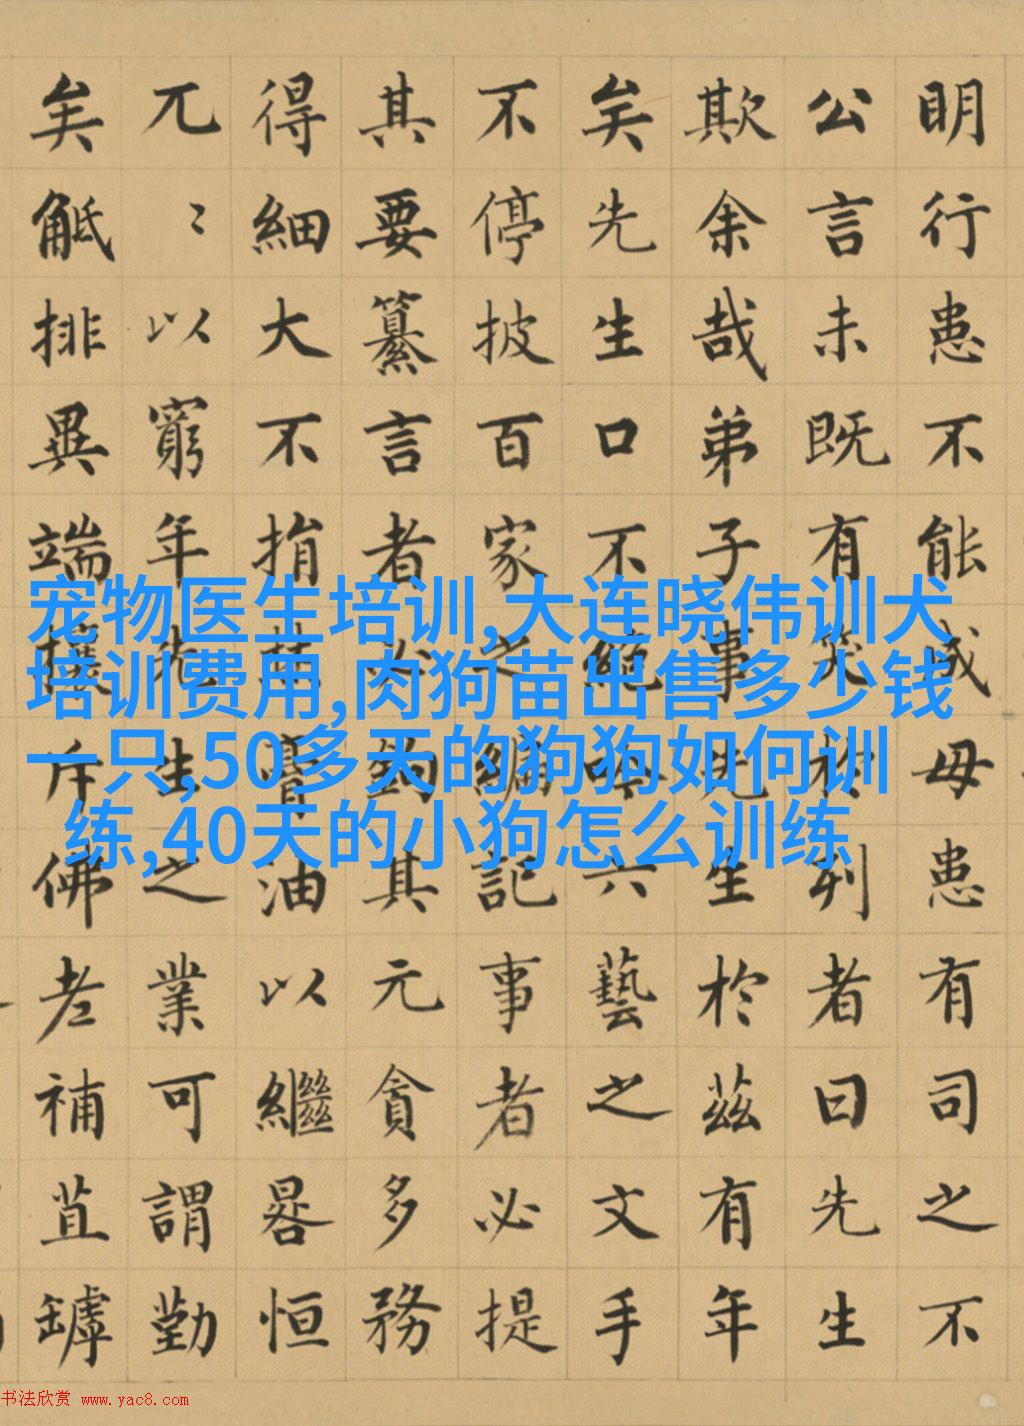 明行患不能成毋患有司之不
公言未既有笑於列者曰先生
欺余哉弟子事先生於茲有年
矣先生口不絶吟六藝之文手
不停披百家之編記事者必提
其要纂言者必鈎其元貪多務
得細大不捐焚膏油以繼晷恒
兀〻以窮年先生之業可謂勤
矣觝排異端攘斥佛老補苴罅
宠物医生培训,大连晓伟训犬
培训费用,肉狗苗出售多少钱
一只,50多天的狗狗如何训
练,40天的小狗怎么训练
书法欣赏 www.yac8.com